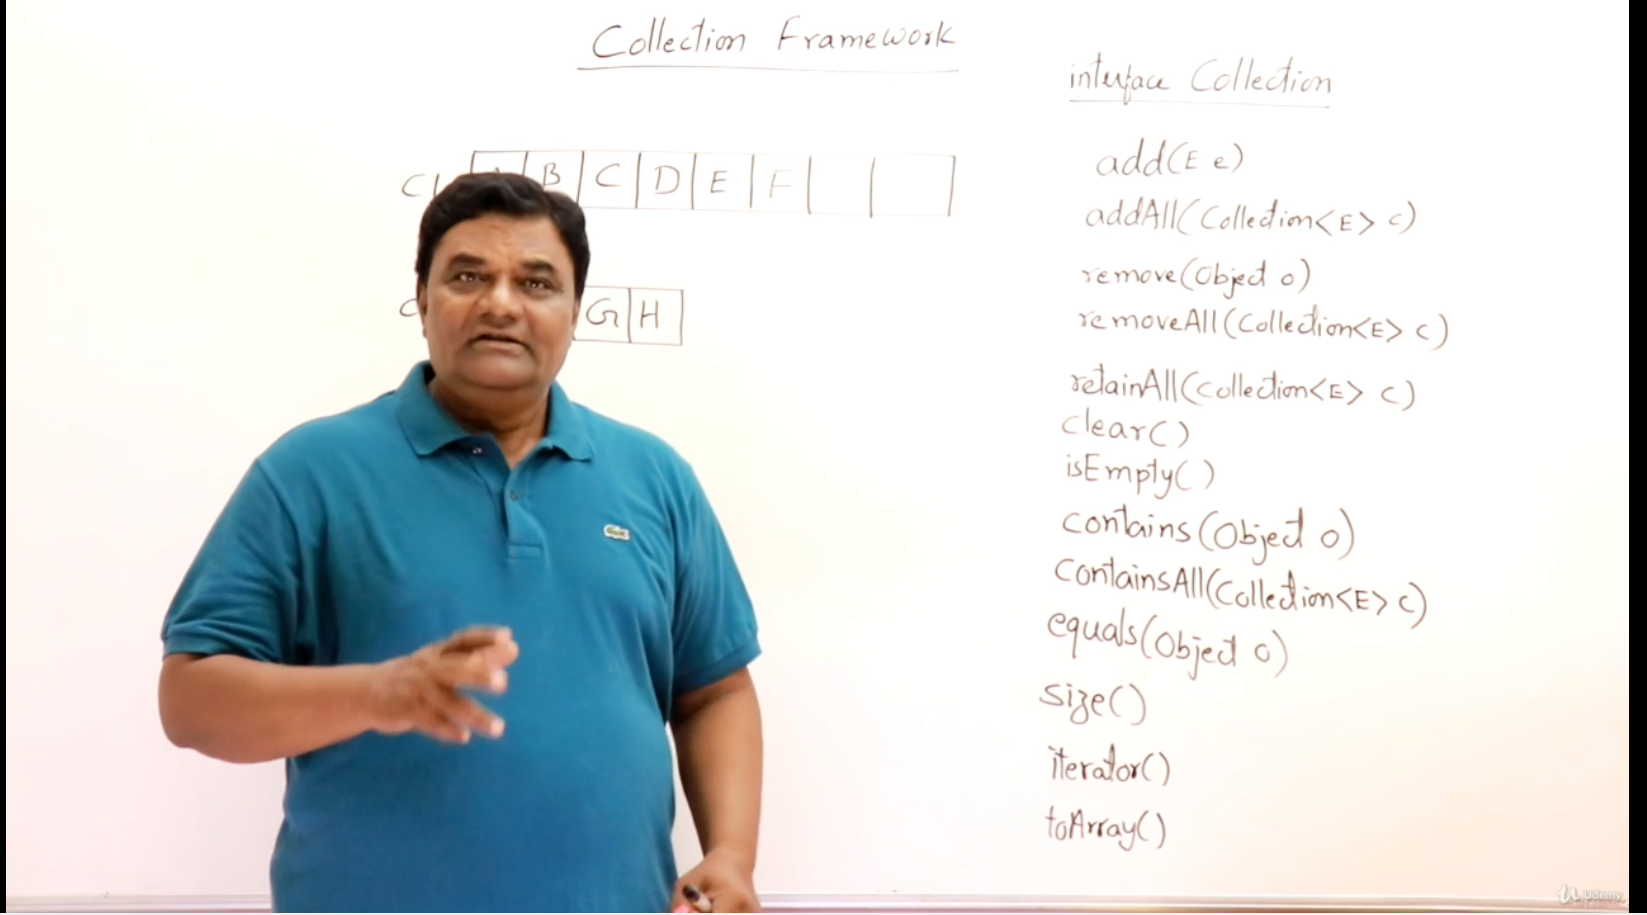 Collection Framework
interface Collection
B C D E F
G H
add(E e)
addAll(Collection<E> c)
remove(Object o)
removeAll(Collection<E> c)
retainAll(Collection<E> c)
clear()
isEmpty()
contains(Object o)
containsAll(Collection<E> c)
equals(Object o)
size()
iterator()
toArray()
Udemy